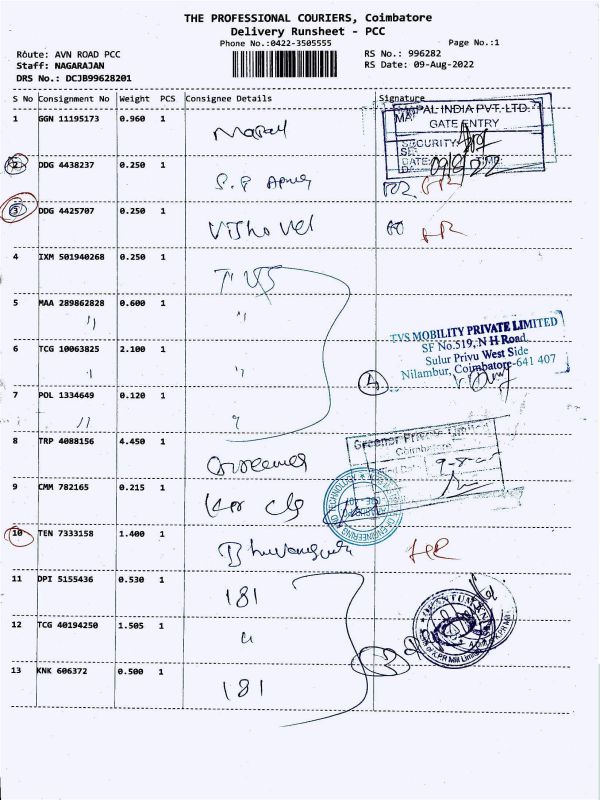 THE PROFESSIONAL COURIERS, Coimbatore
Delivery Runsheet - PCC
Phone No.:0422-3505555
Page No.:1
Route: AVN ROAD PCC
RS No.: 996282
Staff: NAGARAJAN
RS Date: 09-Aug-2022
DRS No.: DCJB99628201
S No Consignment No Weight PCS Consignee Details Signature
1 GGN 11195173 0.960 1
MAPAL INDIA PVT. LTD.
GATE ENTRY
SECURITY:
DATE: 09/8/22 TIME:
2 DDG 4438237 0.250 1
3 DDG 4425707 0.250 1
4 IXM 501940268 0.250 1 TVS
5 MAA 289862828 0.600 1
"
TVS MOBILITY PRIVATE LIMITED
SF No.519, N H Road,
Sulur Privu West Side
Nilambur, Coimbatore-641 407
6 TCG 10063825 2.100 1
"
4
7 POL 1334649 0.120 1
"
8 TRP 4088156 4.450 1
Private Limited
Coimbatore
9 CMM 782165 0.215 1 KPR Clg
10 TEN 7333158 1.400 1
11 DPI 5155436 0.530 1 181
12 TCG 40194250 1.505 1 "
3
13 KNK 606372 0.500 1 181